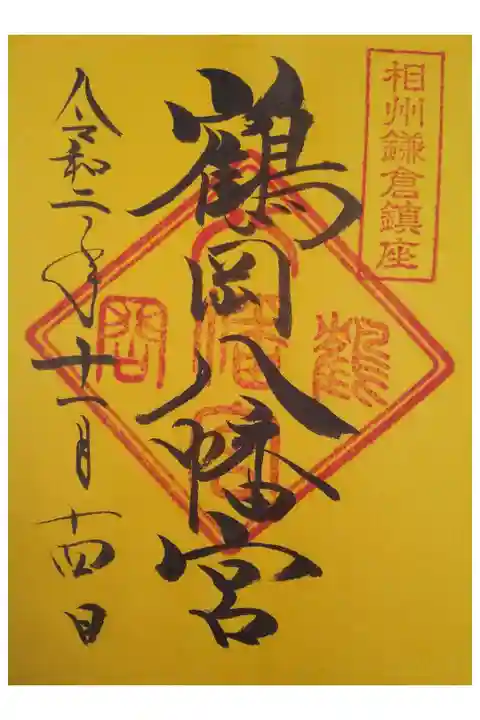 相州鎌倉鎮座
鶴岡八幡宮
令和二年十一月十四日